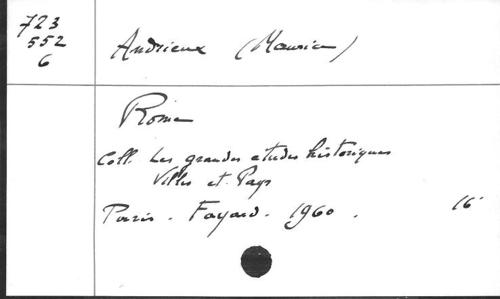 723
552
6
Andrieux (Maurice)
Rome
Coll. Les grandes etudes historiques
Villes et Pays
Paris. Fayard. 1960. 16°